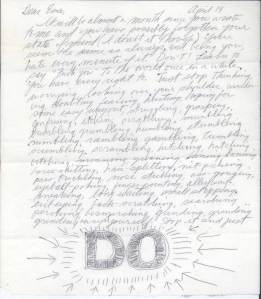 Dear Eva, April 14
It will be almost a month since you wrote
to me and you have possibly forgotten your
state of mind (I doubt it though). You
seem the same as always, and being you,
hate every minute of it. Don't! Learn to
say "Fuck You" to the world once in a while.
You have every right to. Just stop thinking,
worrying, looking over your shoulder,
wondering, doubting, fearing, hurting, hoping for
some easy way out, struggling, grasping,
confusing, itching, scratching, mumbling,
bumbling, grumbling, humbling, stumbling,
numbling, rambling, gambling, tumbling,
scumbling, scrambling, hitching, hatching,
bitching, moaning, groaning, honing, boning,
horse-shitting, hair-splitting, nit-picking,
piss-trickling, nose sticking, ass-gouging,
eyeball-poking, finger-pointing, alleyway-
sneaking, long waiting, small stepping,
evil-eyeing, back-scratching, searching,
perching, besmirching, grinding, grinding,
grinding away at yourself. Stop it and just
DO